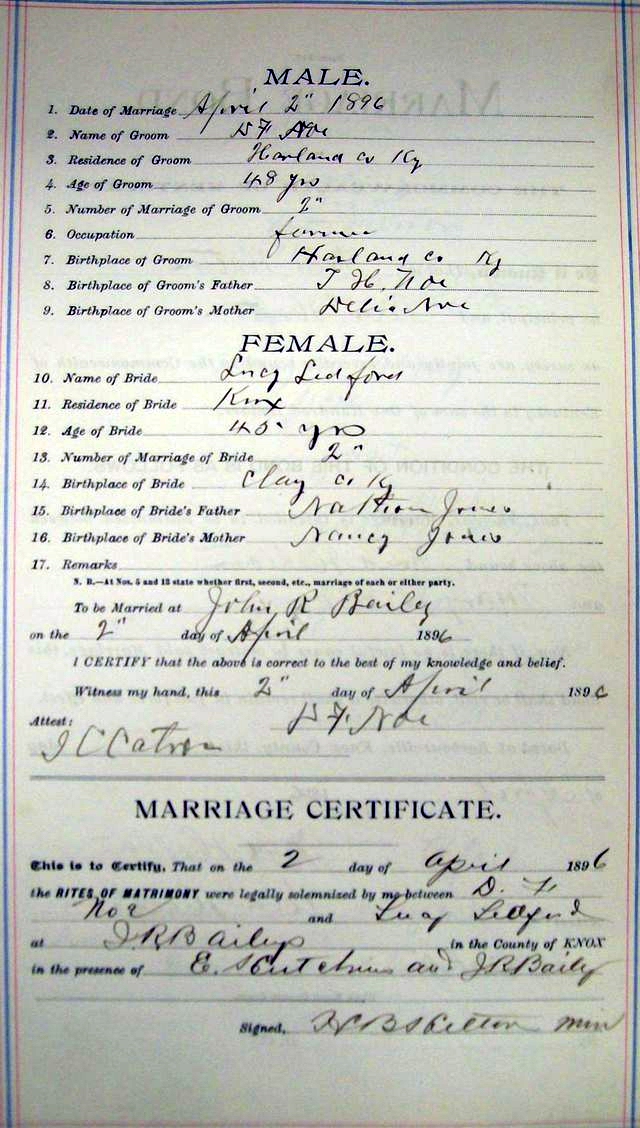 MALE.
1. Date of Marriage April 2" 1896
2. Name of Groom D F Noe
3. Residence of Groom Harland co Ky
4. Age of Groom 48 yrs
5. Number of Marriage of Groom 2"
6. Occupation farmer
7. Birthplace of Groom Harland co Ky
8. Birthplace of Groom's Father T H. Noe
9. Birthplace of Groom's Mother Noe
FEMALE.
10. Name of Bride Lucy Ledford
11. Residence of Bride Knox
12. Age of Bride 45 yrs
13. Number of Marriage of Bride 2"
14. Birthplace of Bride Clay co Ky
15. Birthplace of Bride's Father Jones
16. Birthplace of Bride's Mother Nancy Jones
17. Remarks
N. B.—At Nos. 5 and 13 state whether first, second, etc., marriage of each or either party.
To be Married at John R Bailey
on the 2" day of April 1896
I CERTIFY that the above is correct to the best of my knowledge and belief.
Witness my hand, this 2" day of April 1896
D F Noe
Attest:
J C Catron
MARRIAGE CERTIFICATE.
This is to Certify, That on the 2 day of April 1896
the RITES OF MATRIMONY were legally solemnized by me between D. F
Noe and Lucy Ledford
at J R Baileys in the County of KNOX
in the presence of E. and J R Bailey
Signed, H B Skelton min